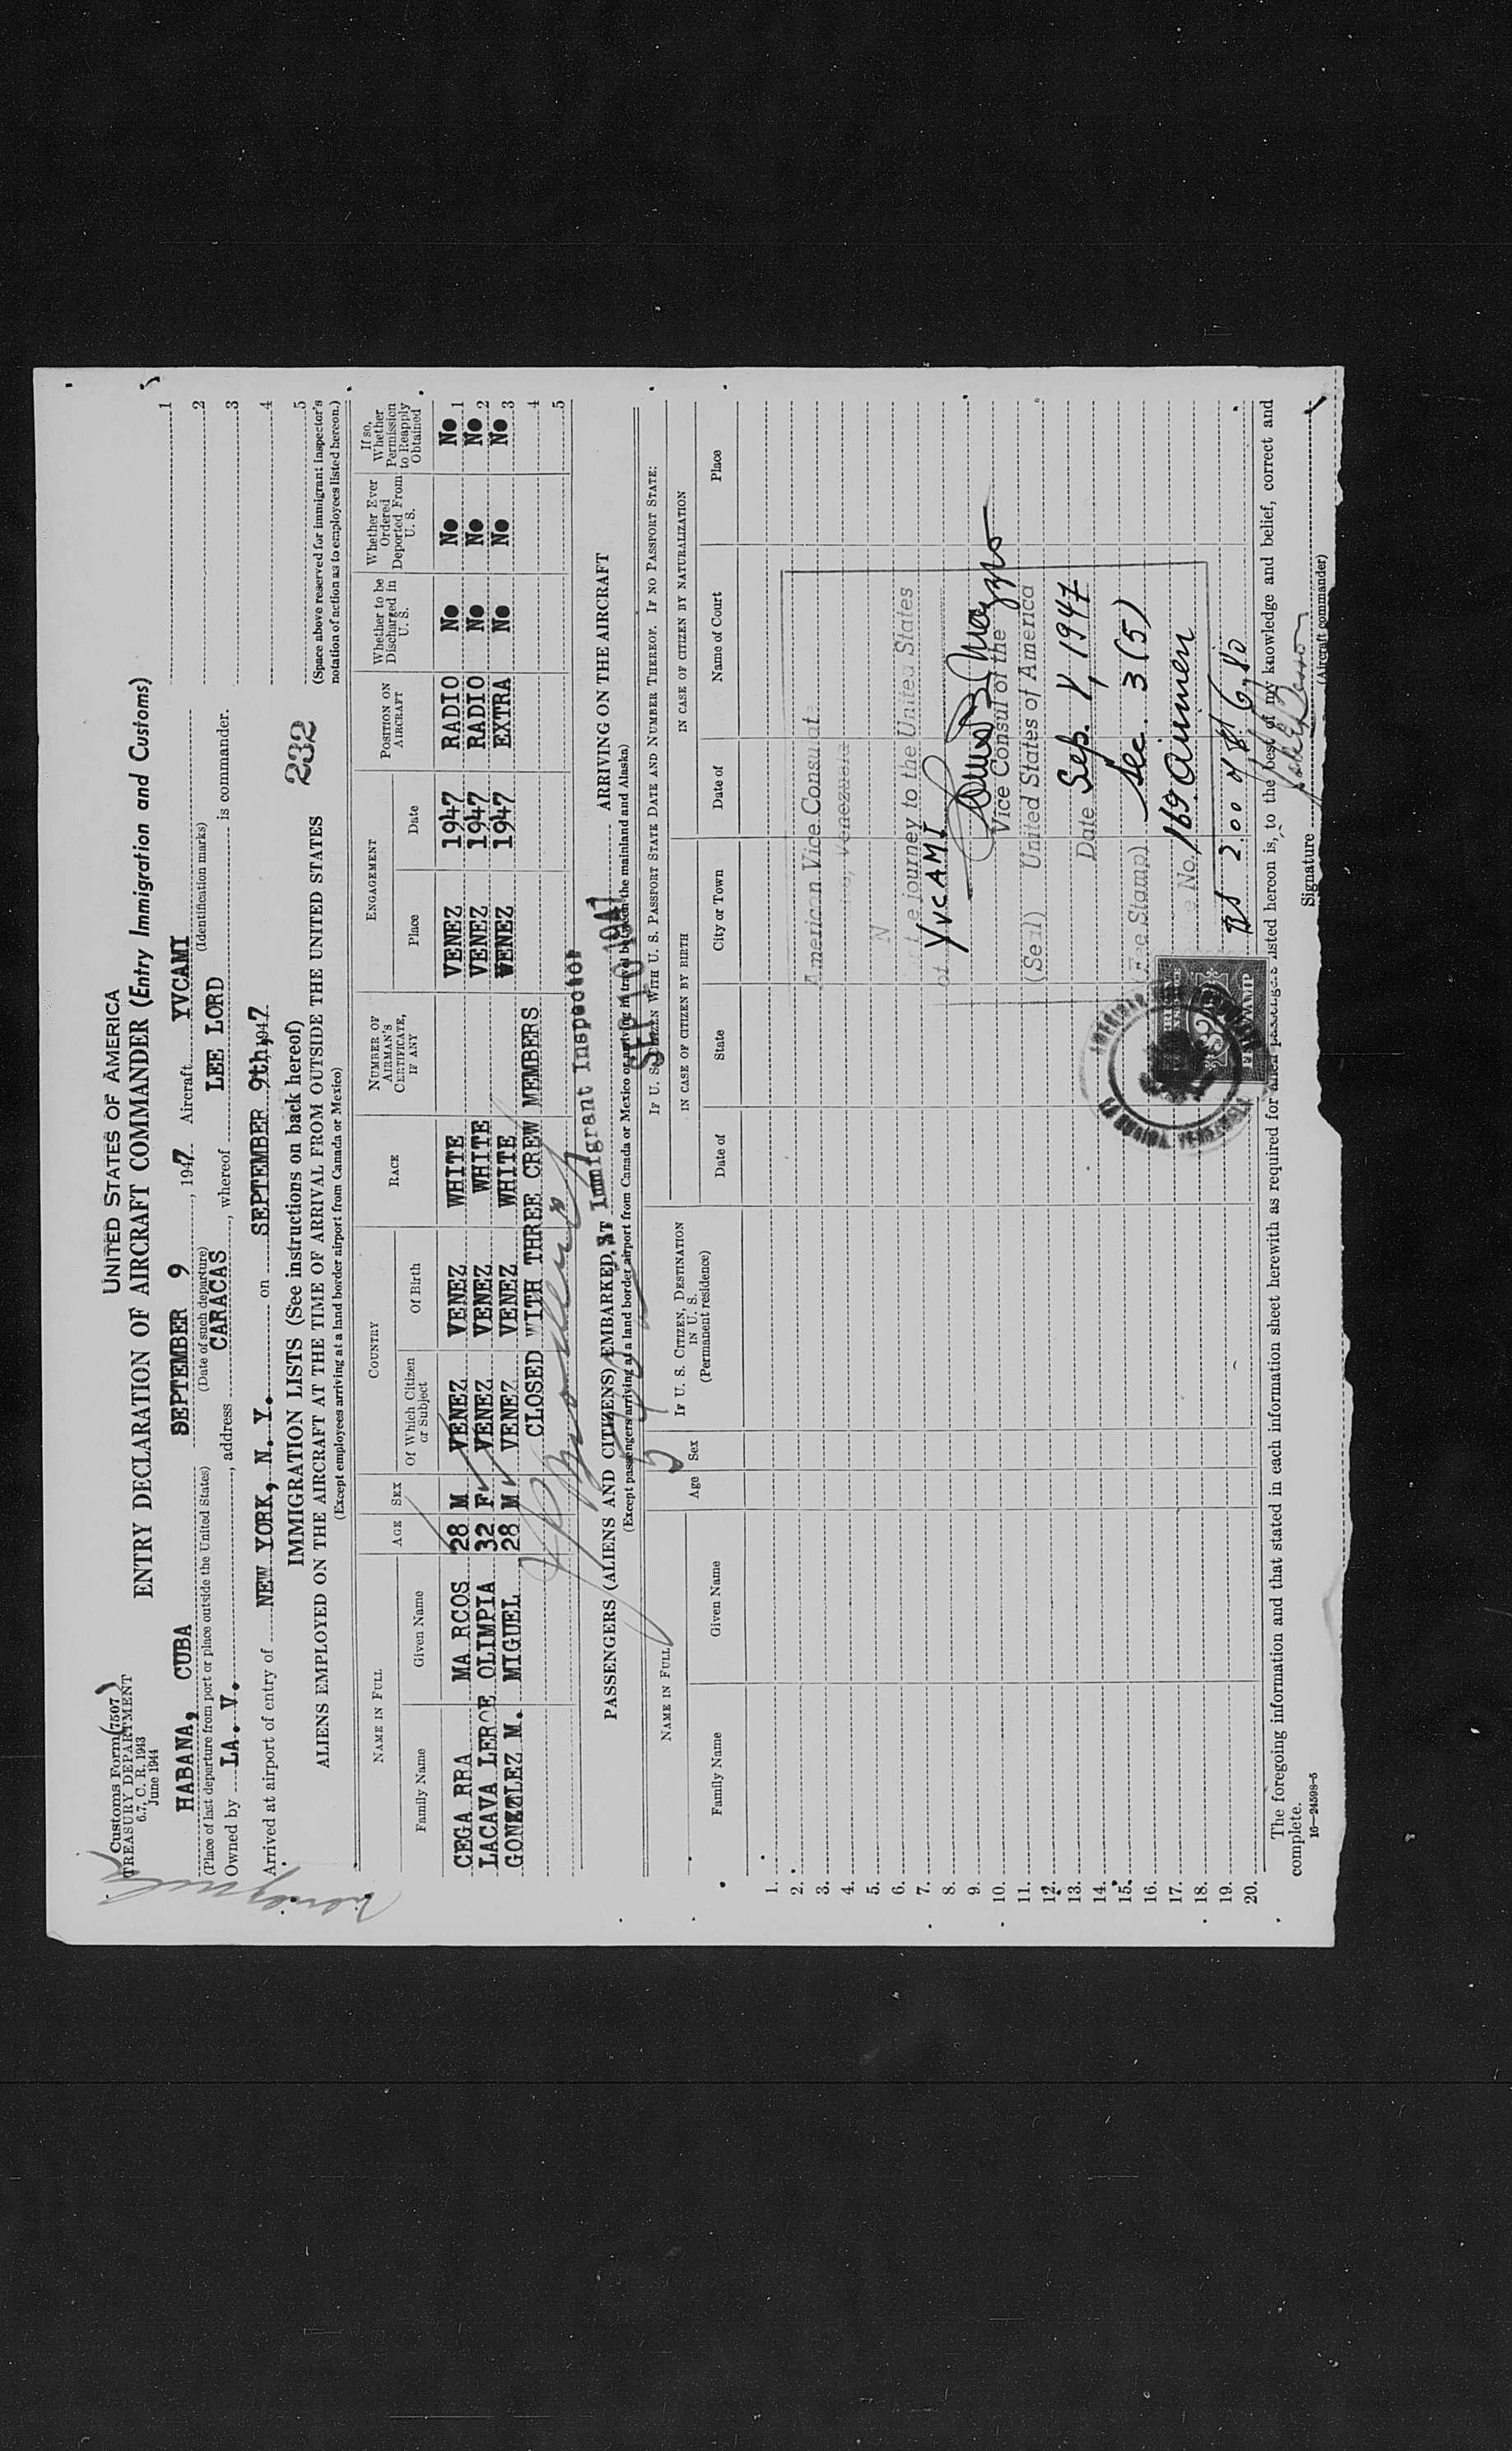 Customs Form (7507)
TREASURY DEPARTMENT
6.7, C. R. 1943
June 1944
UNITED STATES OF AMERICA
ENTRY DECLARATION OF AIRCRAFT COMMANDER (Entry Immigration and Customs)
HABANA, CUBA SEPTEMBER 9, 1947 Aircraft YVCAMI
(Place of last departure from port or place outside the United States) (Date of such departure) (Identification marks)
Owned by LA. V., address CARACAS, whereof LEE LORD is commander.
Arrived at airport of entry of NEW YORK, N. Y. on SEPTEMBER 9th, 1947
1
2
3
4
5
(Space above reserved for immigrant inspector's notation of action as to employees listed hereon.)
IMMIGRATION LISTS (See instructions on back hereof)
232
ALIENS EMPLOYED ON THE AIRCRAFT AT THE TIME OF ARRIVAL FROM OUTSIDE THE UNITED STATES
(Except employees arriving at a land border airport from Canada or Mexico)
NAME IN FULL AGE SEX COUNTRY RACE NUMBER OF AIRMAN'S CERTIFICATE, IF ANY ENGAGEMENT POSITION ON AIRCRAFT Whether to be Discharged in U. S. Whether Ever Ordered Deported From U. S. If so, Whether Permission to Reapply Obtained
Family Name Given Name Of Which Citizen or Subject Of Birth Place Date
CEGA RRA MA RCOS 28 M VENEZ VENEZ WHITE VENEZ 1947 RADIO No No No 1
LACAVA LEROE OLIMPIA 32 F VENEZ VENEZ WHITE VENEZ 1947 RADIO No No No 2
GONZLEZ M. MIGUEL 28 M VENEZ VENEZ WHITE VENEZ 1947 EXTRA No No No 3
CLOSED WITH THREE CREW MEMBERS 4
5
Immigrant Inspector
SEP 10 1947
PASSENGERS (ALIENS AND CITIZENS) EMBARKED AT ARRIVING ON THE AIRCRAFT
(Except passengers arriving at a land border airport from Canada or Mexico or arriving in travel between the mainland and Alaska)
NAME IN FULL Age Sex IF U. S. CITIZEN, DESTINATION IN U. S. (Permanent residence) IF U. S. CITIZEN WITH U. S. PASSPORT STATE DATE AND NUMBER THEREOF. IF NO PASSPORT STATE:
IN CASE OF CITIZEN BY BIRTH IN CASE OF CITIZEN BY NATURALIZATION
Family Name Given Name Date of State City or Town Date of Name of Court Place
1.
2. American Vice Consulat
3. Venezuela
4.
5. N
6. journey to the United States
7. of YVCAMI
8.
9. Vice Consul of the
10. (Seal) United States of America
11.
12. Date Sep. 8, 1947
13.
14. (Fee Stamp) Sec. 3 (5)
15.
16. No. 169
17.
18. 2.00 6.80
19.
20.
The foregoing information and that stated in each information sheet herewith as required for alien passengers listed hereon is, to the best of my knowledge and belief, correct and
complete.
16—24598-5
Signature
(Aircraft commander)